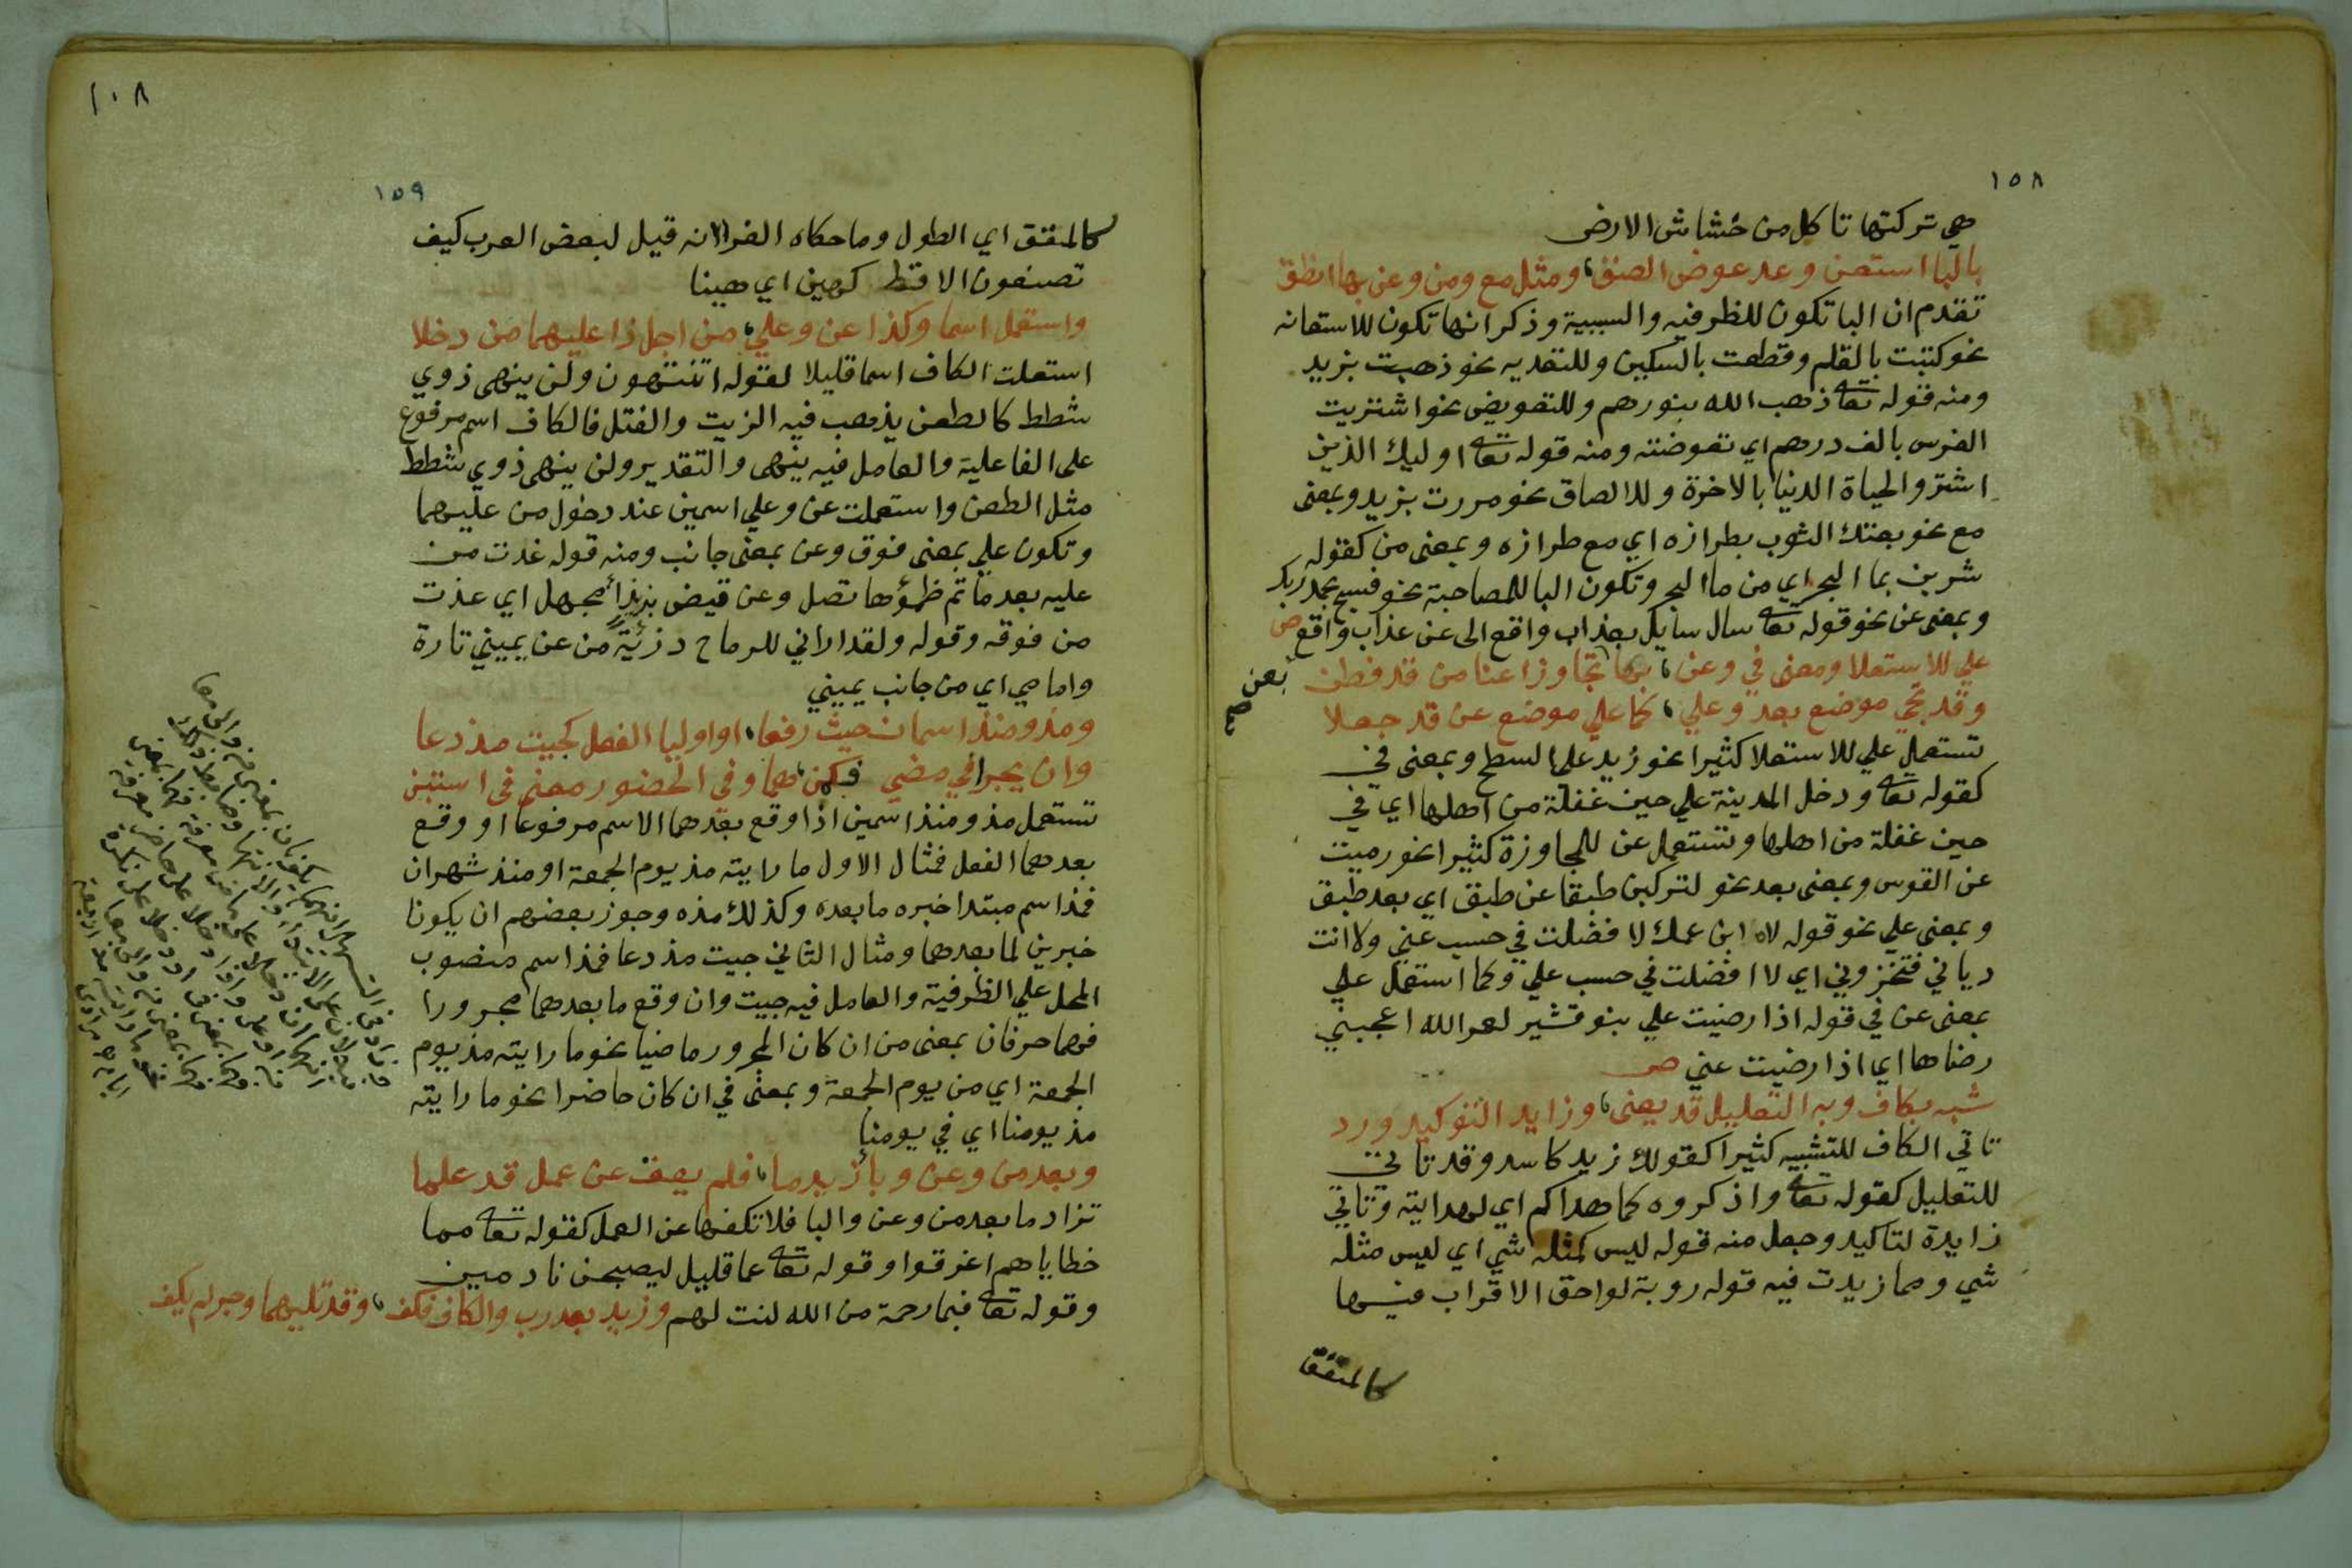 ١٥٨
هي تركتها تاكل من خشاش الارض
بالبا استعن وعد عوض الصق ومثل مع ومن وعن بها انطق
تقدم ان البا تكون للظرفيه والسببية وذكر انها تكون للاستعانه
نحو كتبت بالقلم وقطعت بالسكين وللتعديه نحو ذهبت بزيد
ومنه قوله تعا ذهب الله بنورهم وللتعويض نحو اشتريت
الفرس بالف درهم اي تعوضته ومنه قوله تعا اوليك الذين
اشتروا الحياة الدنيا بالاخرة وللالصاق نحو مررت بزيد وبمعنى
مع نحو بعتك الثوب بطرازه اي مع طرازه وبمعنى من كقوله
شربن بما البحر اي من ما البحر وتكون البا للمصاحبة نحو فسبح بحمد ربك
وبمعنى عن نحو قوله تعا سال سايل بعذاب واقع الى عن عذاب واقع ص
على للاستعلا ومعنى في وعن بعن تجاوزا عنا من قد فطن
بعن صح
وقد تجي موضع بعد وعلي كما علي موضع عن قد جعلا
تستعمل علي للاستعلا كثيرا نحو زيد على السطح وبمعنى في
كقوله تعا ودخل المدينة علي حين غفلة من اهلها اي في
حين غفلة من اهلها وتستعمل عن للمجاوزة كثيرا نحو رميت
عن القوس وبمعنى بعد نحو لتركبن طبقا عن طبق اي بعد طبق
وبمعنى علي نحو قوله لاه ابن عمك لا فضلت في حسب عني ولا انت
دياني فتخزوني اي لا افضلت في حسب علي وكما استعمل علي
بمعنى عن في قوله اذا رضيت علي بنو قشير لعمر الله اعجبني
رضاها اي اذا رضيت عني ص
شبه بكاف وبه التعليل قد يعنى وزايد التوكيد ورد
تاتي الكاف للتشبيه كثيرا كقولك زيد كاسد وقد تاتي
للتعليل كقوله تعا واذكروه كما هداكم اي لهدايته وتاتي
زايدة لتاكيد وجعل منه قوله ليس كمثله شي اي ليس مثله
شي ومما زيدت فيه قوله روبة لواحق الاقراب فيها
كالمقق
١٠٨
١٥٩
كالمقق اي الطول وما حكاه الفرا انه قيل لبعض العرب كيف
تصنعون الاقط كهين اي هينا
واستعمل اسما وكذا عن وعلي من اجل ذا عليهما من دخلا
استعملت الكاف اسما قليلا لقوله اتنتهون ولن ينهى ذوي
شطط كالطعن يذهب فيه الزيت والفتل فالكاف اسم مرفوع
على الفاعلية والعامل فيه ينهى والتقدير ولن ينهى ذوي شطط
مثل الطعن واستعملت عن وعلي اسمين عند دخول من عليهما
وتكون علي بمعنى فوق وعن بمعنى جانب ومنه قوله غدت من
عليه بعد ما تم ظمؤها تصل وعن قيض بزيزا مجهل اي غدت
من فوقه وقوله ولقد اراني للرماح درئية من عن يميني تارة
وامامي اي من جانب يميني
ومذ ومنذ اسمان حيث رفعا او اوليا الفعل كجيت مذ دعا
وان يجرا في مضي فكمن هما وفي الحضور معنى في استبن
تستعمل مذ ومنذ اسمين اذا وقع بعدهما الاسم مرفوعا او وقع
بعدهما الفعل فمثال الاول ما رايته مذ يوم الجمعة او منذ شهران
فمذ اسم مبتدا خبره ما بعده وكذلك منذ وجوز بعضهم ان يكونا
خبرين لما بعدهما ومثال الثاني جيت مذ دعا فمذ اسم منصوب
المحل علي الظرفية والعامل فيه جيت وان وقع ما بعدهما مجرورا
فهما حرفان بمعنى من ان كان المجرور ماضيا نحو ما رايته مذ يوم
الجمعة اي من يوم الجمعة وبمعنى في ان كان حاضرا نحو ما رايته
مذ يومنا اي في يومنا
وبعد من وعن وبا زيد ما فلم يعق عن عمل قد علما
تزاد ما بعد من وعن والبا فلا تكفها عن العمل كقوله تعا مما
خطاياهم اغرقوا وقوله تعا عما قليل ليصبحن نادمين
وقوله تعا فبما رحمة من الله لنت لهم وزيد بعد رب والكاف فكف وقد تليهما وجر لم يكف